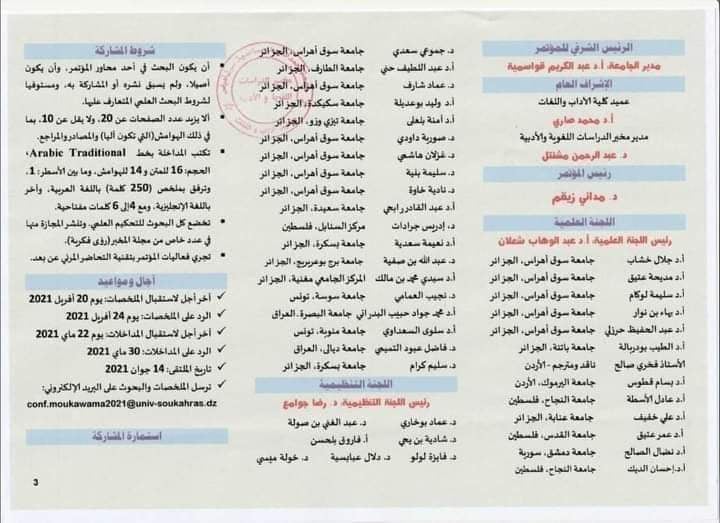 الرئيس الشرفي للمؤتمر
مدير الجامعة، أ.د. عبد الكريم قواسمية
الإشراف العام
عميد كلية الآداب واللغات
أ.د محمد صاري
مدير مخبر الدراسات اللغوية والأدبية
د. عبد الرحمن مشنتل
رئيس المؤتمر
د. مداني زيقم
اللجنة العلمية
رئيس اللجنة العلمية، أ.د عبد الوهاب شعلان
أ.د جلال خشاب جامعة سوق أهراس، الجزائر
أ.د مديحة عتيق جامعة سوق أهراس، الجزائر
أ.د سليمة لوكام جامعة سوق أهراس، الجزائر
أ.د بهاء بن نوار جامعة سوق أهراس، الجزائر
أ.د عبد الحفيظ حرزلي جامعة سوق أهراس، الجزائر
أ.د الطيب بودربالة جامعة باتنة، الجزائر
الأستاذ فخري صالح ناقد ومترجم - الأردن
أ.د بسام قطوس جامعة اليرموك، الأردن
أ.د عادل الأسطة جامعة النجاح، فلسطين
أ.د علي خفيف جامعة عنابة، الجزائر
أ.د عمر عتيق جامعة القدس، فلسطين
أ.د نضال الصالح جامعة دمشق، سورية
أ.د.إحسان الديك جامعة النجاح، فلسطين
د. جموعي سعدي جامعة سوق أهراس، الجزائر
أ.د عبد اللطيف حني جامعة الطارف، الجزائر
د. عماد شارف جامعة سوق أهراس، الجزائر
د. وليد بوعديلة جامعة سكيكدة، الجزائر
أ.د آمنة بلعلى جامعة تيزي وزو، الجزائر
د. صورية داودي جامعة سوق أهراس، الجزائر
د. غزلان هاشمي جامعة سوق أهراس، الجزائر
د. سليمة بنية جامعة سوق أهراس، الجزائر
د. نادية خاوة جامعة سوق أهراس، الجزائر
أ.د عبد القادر رابحي جامعة سعيدة، الجزائر
د. إدريس جرادات مركز السنابل، فلسطين
أ.د نعيمة سعدية جامعة بسكرة، الجزائر
د. عبد الله بن صفية جامعة برج بوعريريج، الجزائر
أ.د سيدي محمد بن مالك المركز الجامعي مغنية، الجزائر
د. نجيب العمامي جامعة سوسة، تونس
أ.د محمد جواد حبيب البدراني جامعة البصرة، العراق
أ.د سلوى السعداوي جامعة منوبة، تونس
د. فاضل عبود التميمي جامعة ديالى، العراق
د. سليم كرام جامعة بسكرة، الجزائر
اللجنة التنظيمية
رئيس اللجنة التنظيمية، د. رضا جوامع
د. عماد بوخاري د. عبد الغني بن صولة
د. شادية بن يحي أ. فاروق بلحسن
د. فايزة لولو د. دلال عبابسية د. خولة ميسي
شروط المشاركة
أن يكون البحث في أحد محاور المؤتمر، وأن يكون
أصيلا، ولم يسبق نشره أو المشاركة به، ومستوفيا
لشروط البحث العلمي المتعارف عليها.
ألا يزيد عدد الصفحات عن 20، ولا يقل عن 10، بما
في ذلك الهوامش (التي تكون آليا) والمصادر والمراجع.
تكتب المداخلة بخط Arabic Traditional؛
الحجم: 16 للمتن و 14 للهوامش، وما بين الأسطر: 1.
وترفق بملخص (250 كلمة) باللغة العربية، وآخر
باللغة الإنجليزية، ومع 4 إلى 6 كلمات مفتاحية.
تخضع كل البحوث للتحكيم العلمي، وتنشر المجازة منها
في عدد خاص من مجلة المخبر (رؤى فكرية).
تجري فعاليات المؤتمر بتقنية التحاضر المرئي عن بعد.
آجال ومواعيد
✓ آخر أجل لاستقبال الملخصات: يوم 20 أفريل 2021
✓ الرد على الملخصات: يوم 24 أفريل 2021
✓ آخر أجل لاستقبال المداخلات: يوم 22 ماي 2021
✓ الرد على المداخلات: 30 ماي 2021
✓ تاريخ الملتقى: 14 جوان 2021
✓ ترسل الملخصات والبحوث على البريد الإلكتروني:
conf.moukawama2021@univ-soukahras.dz
استمارة المشاركة
3